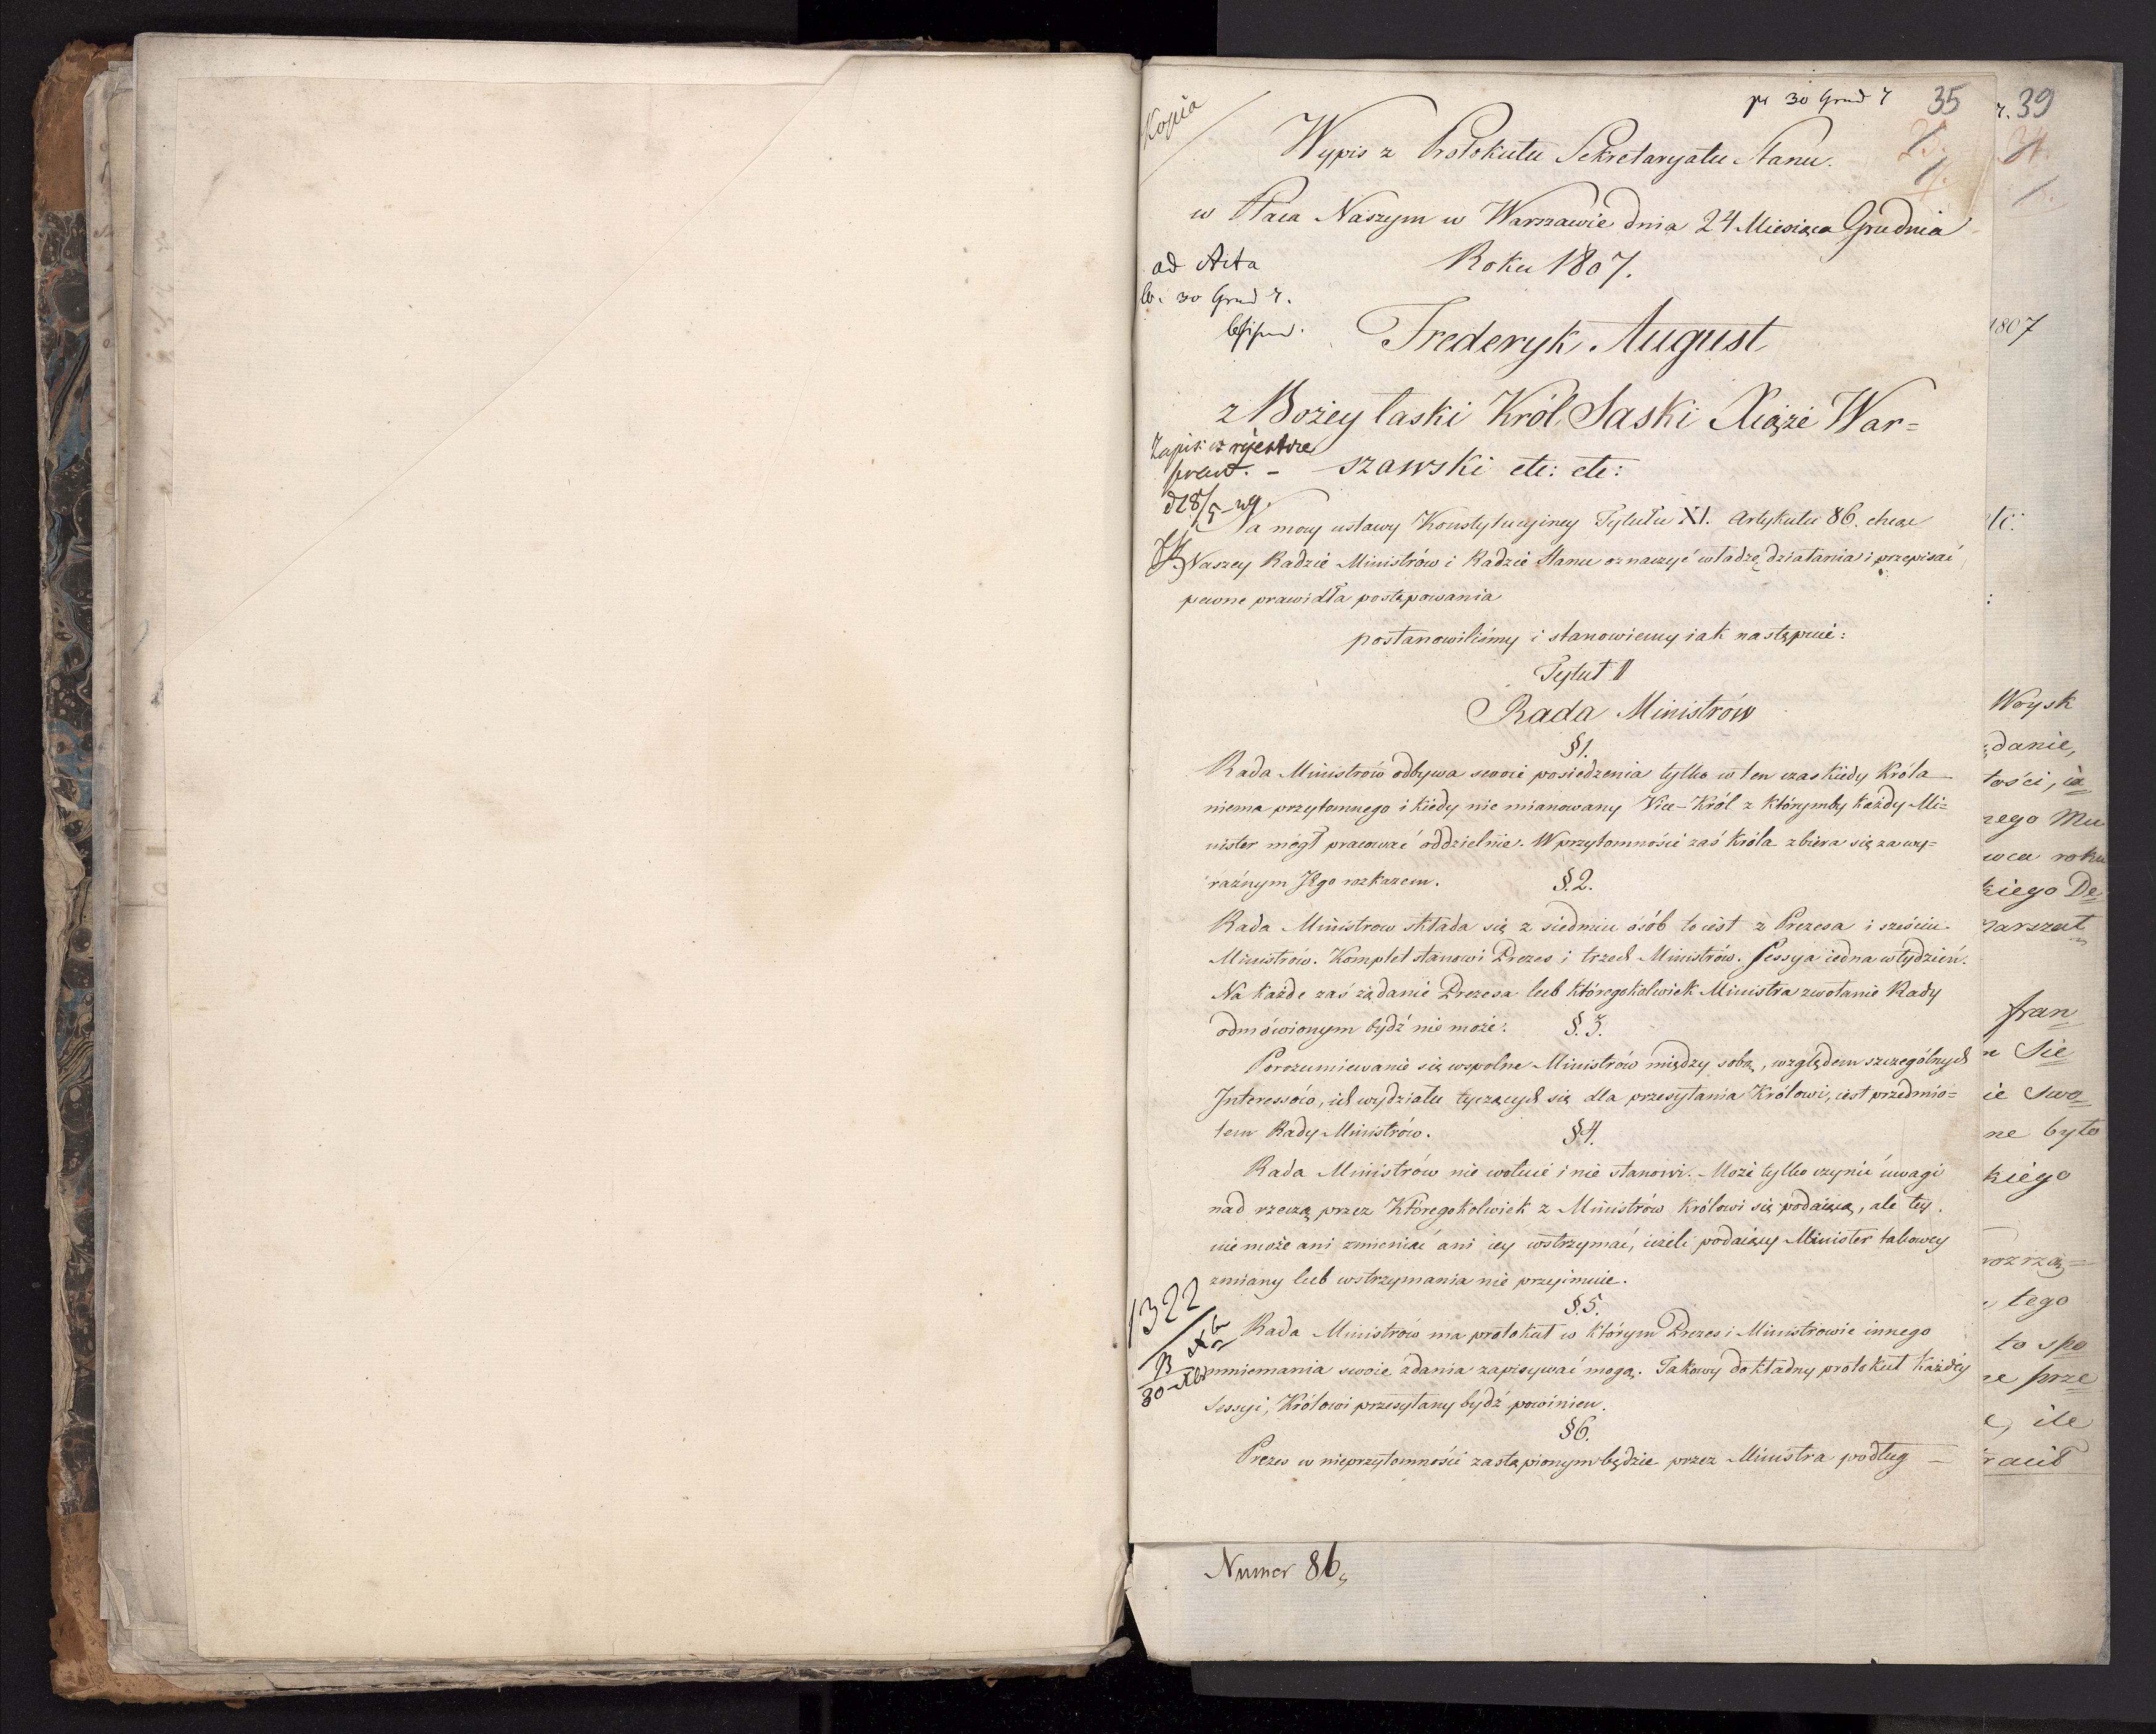 Kopia
pr 30 Grud r 35
Wypis z Protokułu Sekretaryatu Stanu.
w Pałacu Naszym w Warszawie dnia 24 Miesiąca Grudnia
Roku 1807.
ad Acta
30 Grud r.
Frederyk August
z Bożey łaski Król Saski Xiąże War=
szawski etc: etc:
Na mocy ustawy Konstytucyiney Tytułu XI. Artykułu 86. chcąc
Naszey Radzie Ministrów i Radzie Stanu oznaczyć władzę działania i przepisać
pewne prawidła postępowania
postanowiliśmy i stanowiemy iak następuie:
Tytuł II
Rada Ministrów
§1.
Rada Ministrów odbywa swoie posiedzenia tylko w ten czas kiedy Króla
niema przytomnego i kiedy nie mianowany Vice-Król z którymby każdy Mi=
nister mógł pracować oddzielnie. W przytomności zaś Króla zbiera się za wy=
raźnym Jego rozkazem.
§.2.
Rada Ministrow składa się z siedmiu osób to iest z Prezesa i sześciu
Ministrów. Komplet stanowi Prezes i trzech Ministrów. Sessya iedna w tydzień.
Na każde zaś żądanie Prezesa lub któregokolwiek Ministra zwołanie Rady
odmówionym bydź nie może.
§.3.
Porozumiewanie się wspolne Ministrów między sobą, względem szczególnych
Interessów, ich wydziału tyczących się dla przesyłania Królowi, iest przedmio=
tem Rady Ministrów.
§4.
Rada Ministrów nie wotuie i nie stanowi. Może tylko czynić uwagi
nad rzeczą przez Któregokolwiek z Ministrów Królowi się podaiącą, ale tey
nie może ani zmieniać ani iey wstrzymać, ieżeli podaiący Minister takowey
zmiany lub wstrzymania nie przyimuie.
1322
§.5.
Rada Ministrów ma protokuł w którym Prezes i Ministrowie innego
mniemania swoie zdania zapisywać mogą. Takowy dokładny protokuł każdéy
Sessyi, Królowi przesyłany bydź powinien.
§6.
Prezes w nieprzytomności zastąpionym będzie przez Ministra podług
Numer 86,
39
1807
Woysk
danie,
tości, ia
nego Mu
wca roku
kiego De
marszał
fran
Sie
ie swo
ne było
kiego
rozrzą=
tego
to spo
prze
ile